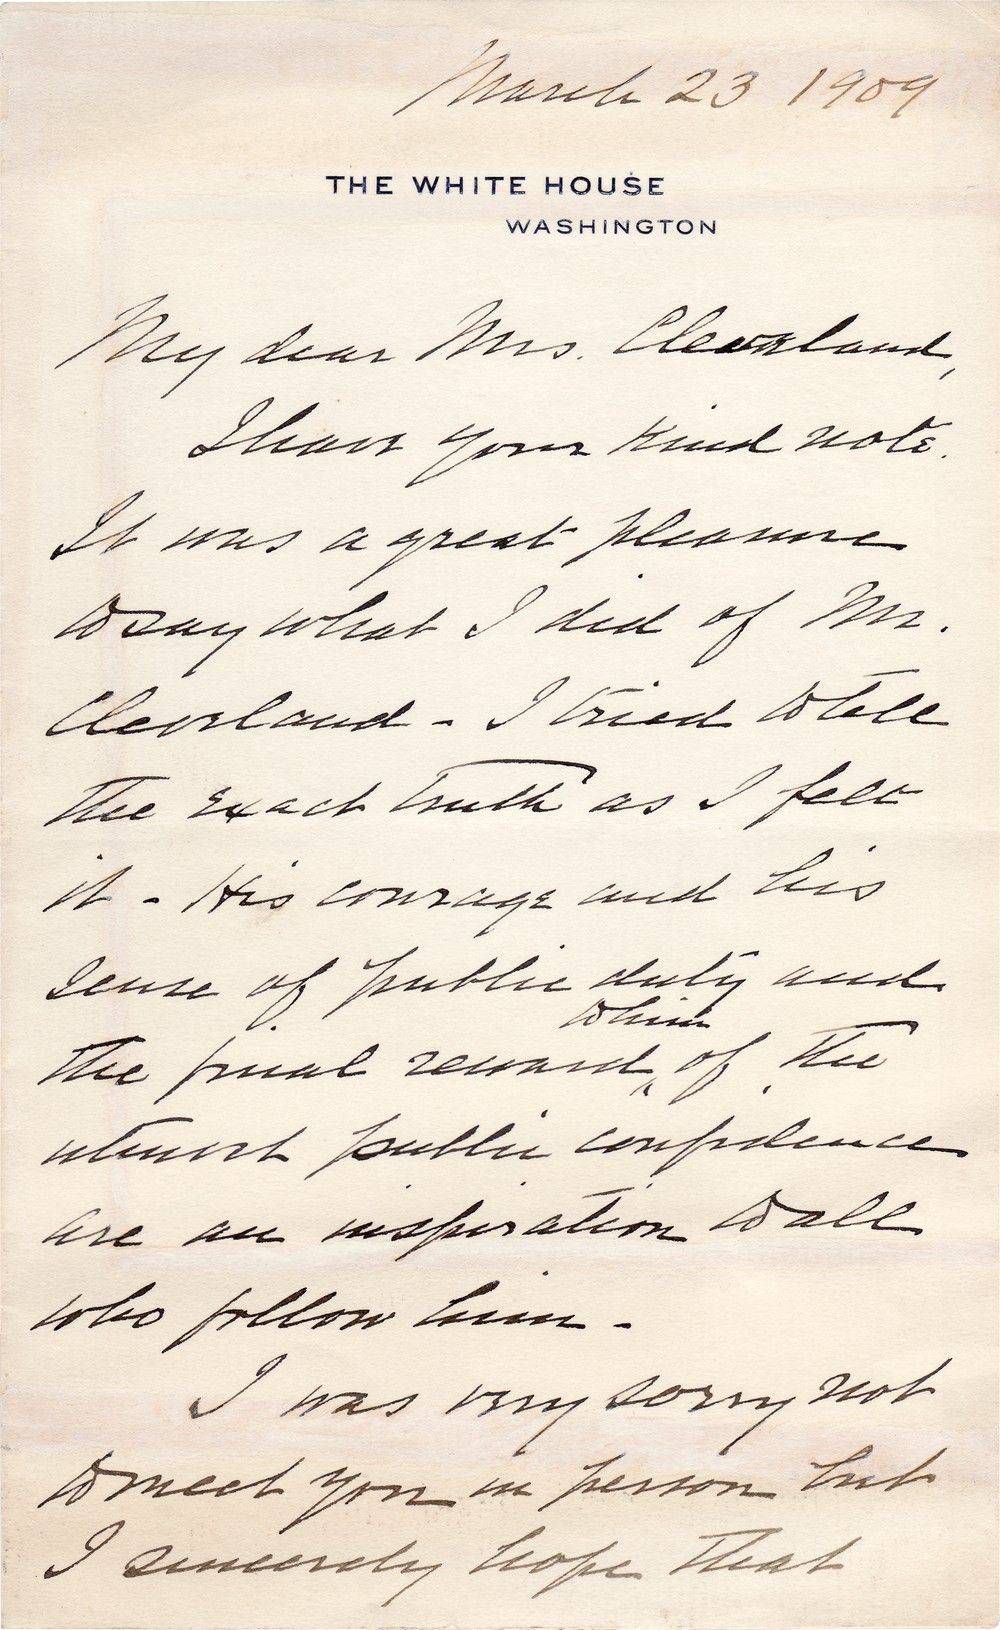 March 23 1909
THE WHITE HOUSE
WASHINGTON
My dear Mrs. Cleveland,
I have your kind note.
It was a great pleasure
to say what I did of Mr.
Cleveland - I tried to tell
the exact truth as I felt
it - His courage and his
sense of public duty and
to him
the final reward of the
utmost public confidence
are an inspiration to all
who follow him -
I was very sorry not
to meet you in person but
I sincerely hope that